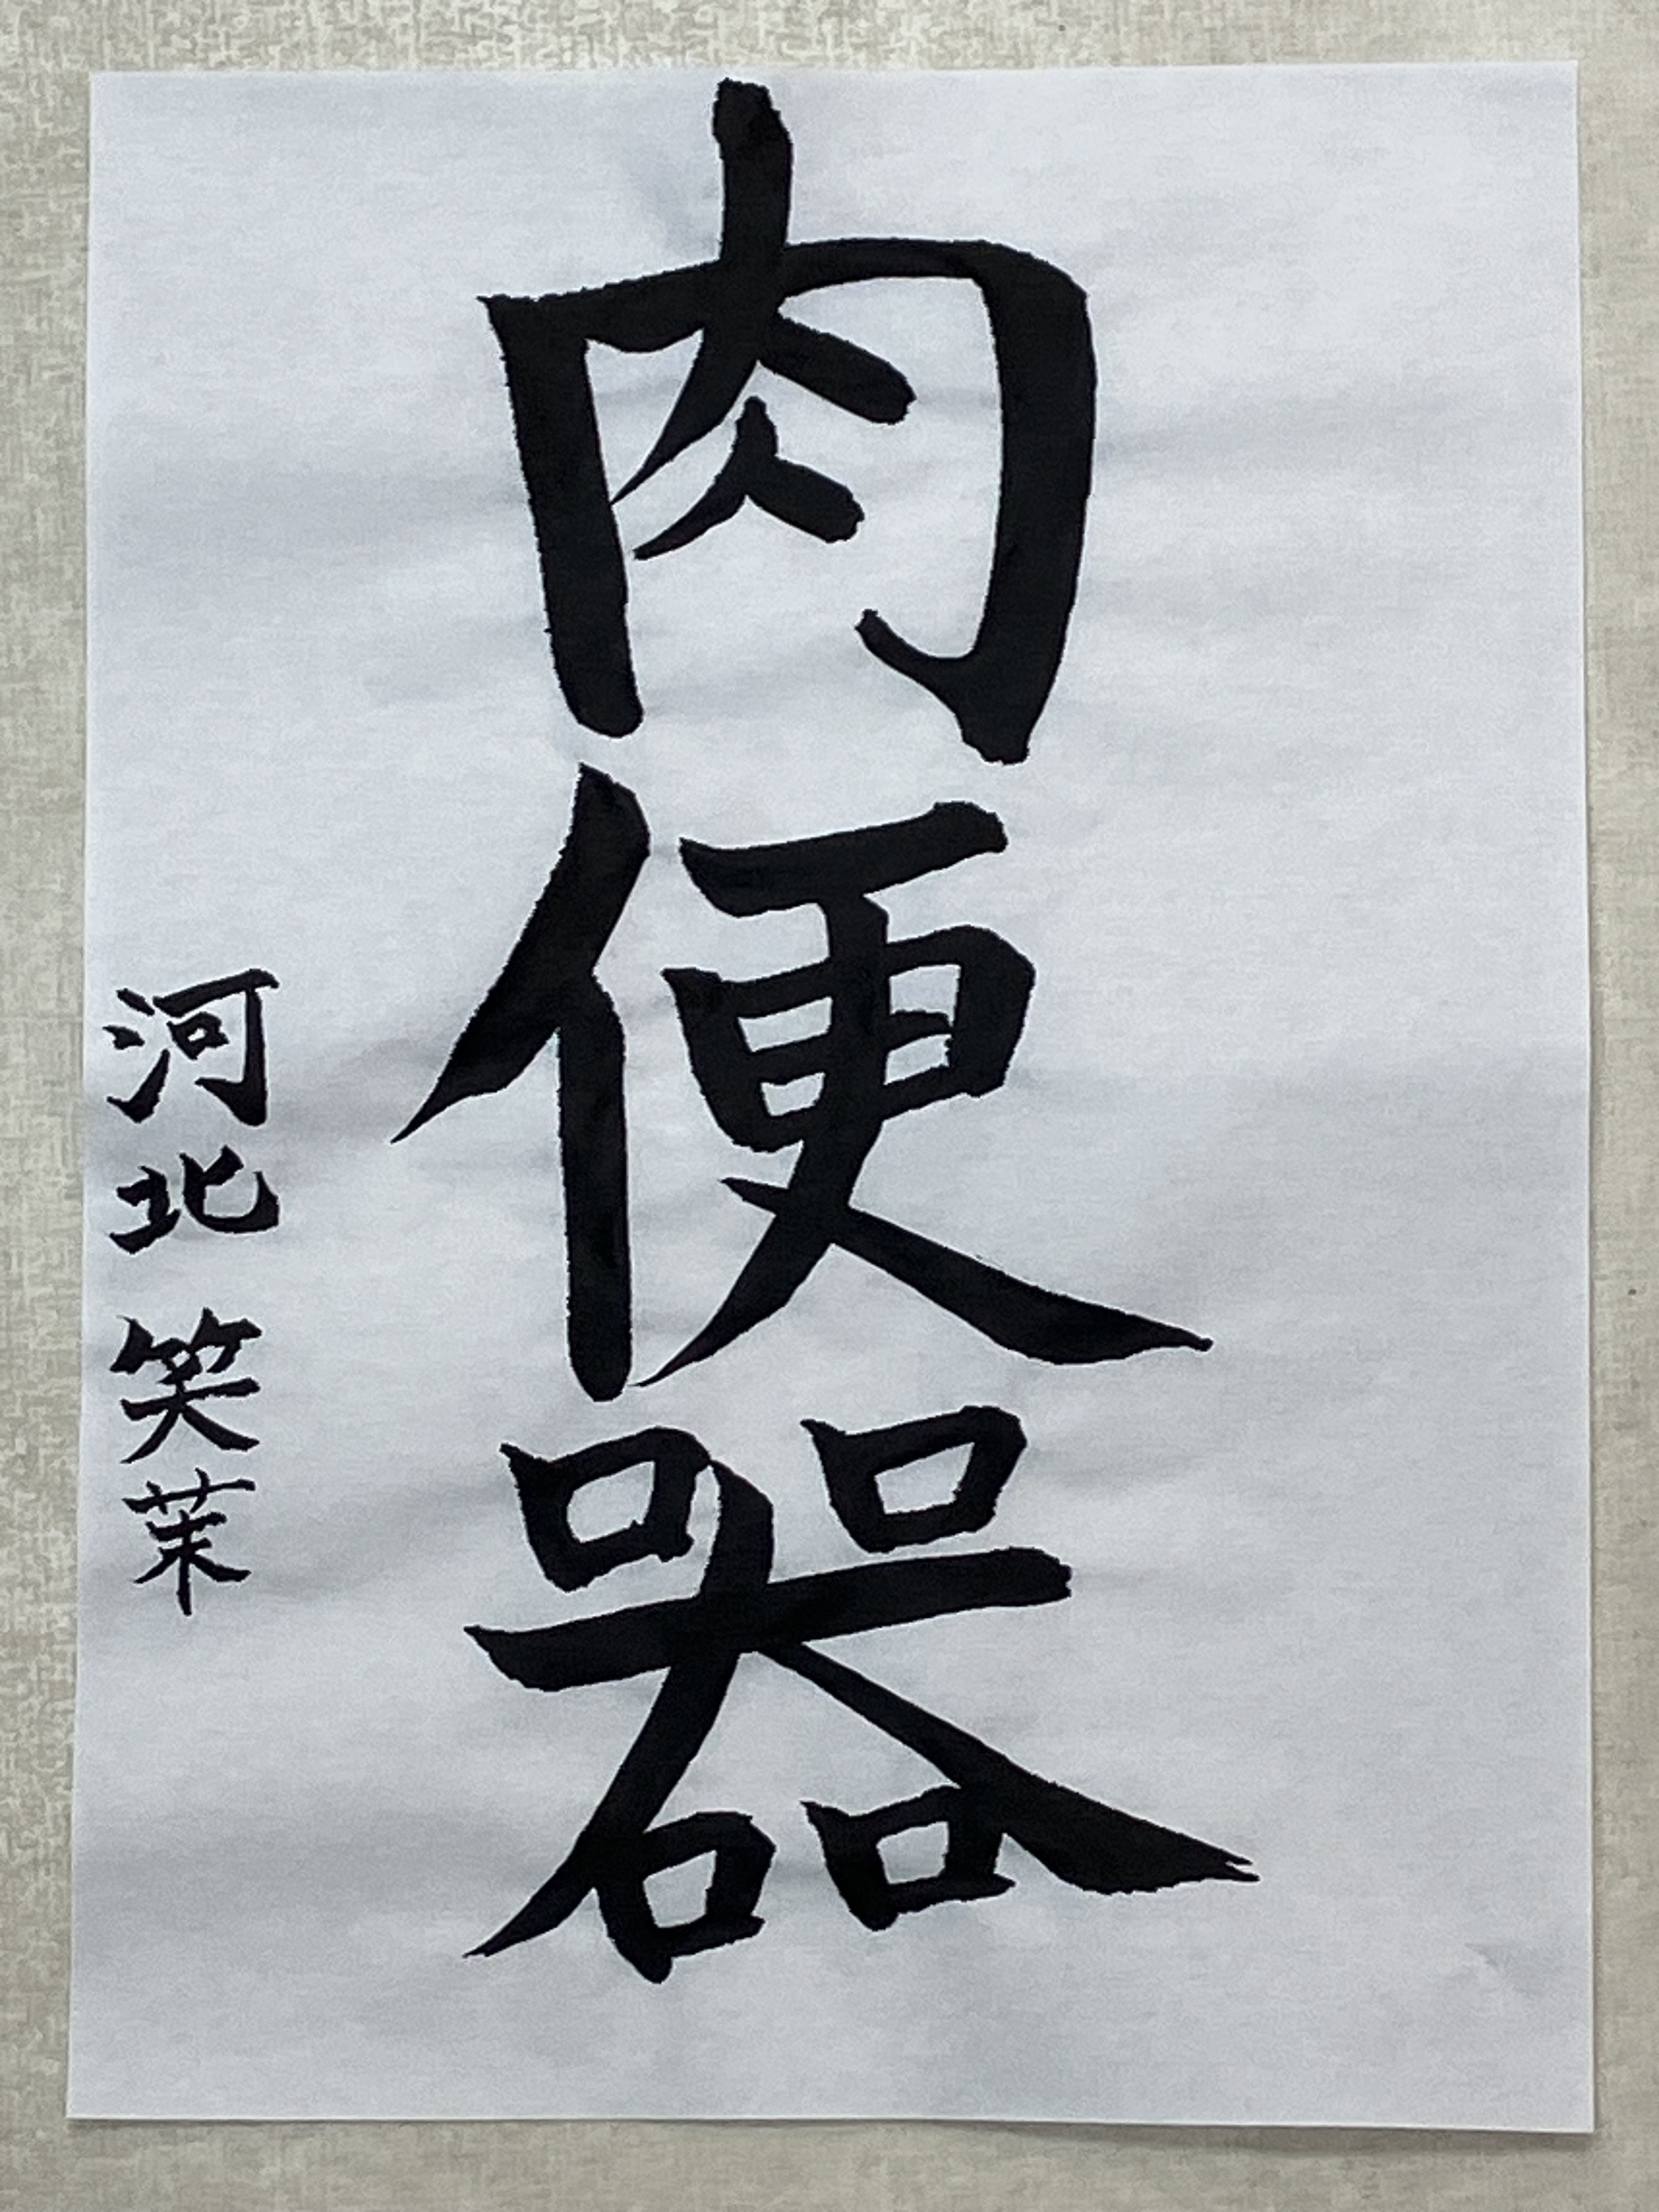 肉便器
河北 笑茉